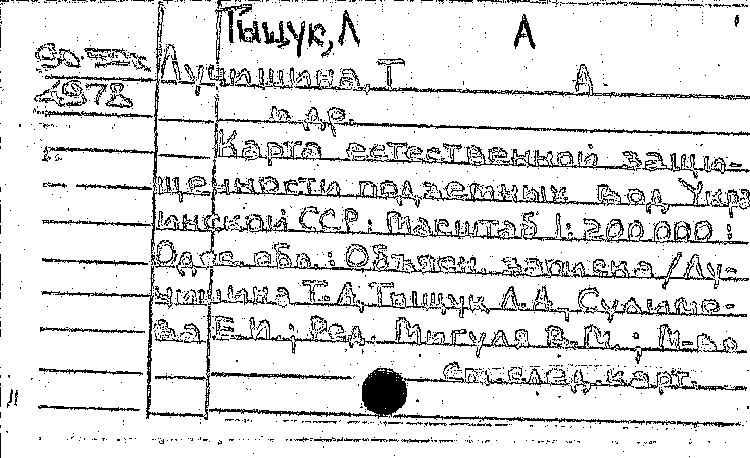 Тыщук, Л А
Лучишина, Т А
1978
и др.
Карта естественной защи-
щенности подземных вод Укра
инской ССР: Масштаб 1:200 000:
Одес. обл.: Объясн. записка / Лу-
чишина Т.А, Тыщук Л.А, Сулимо-
ва Е.И.; Ред. Мигуля В.М.; М-во
См.след.карт.